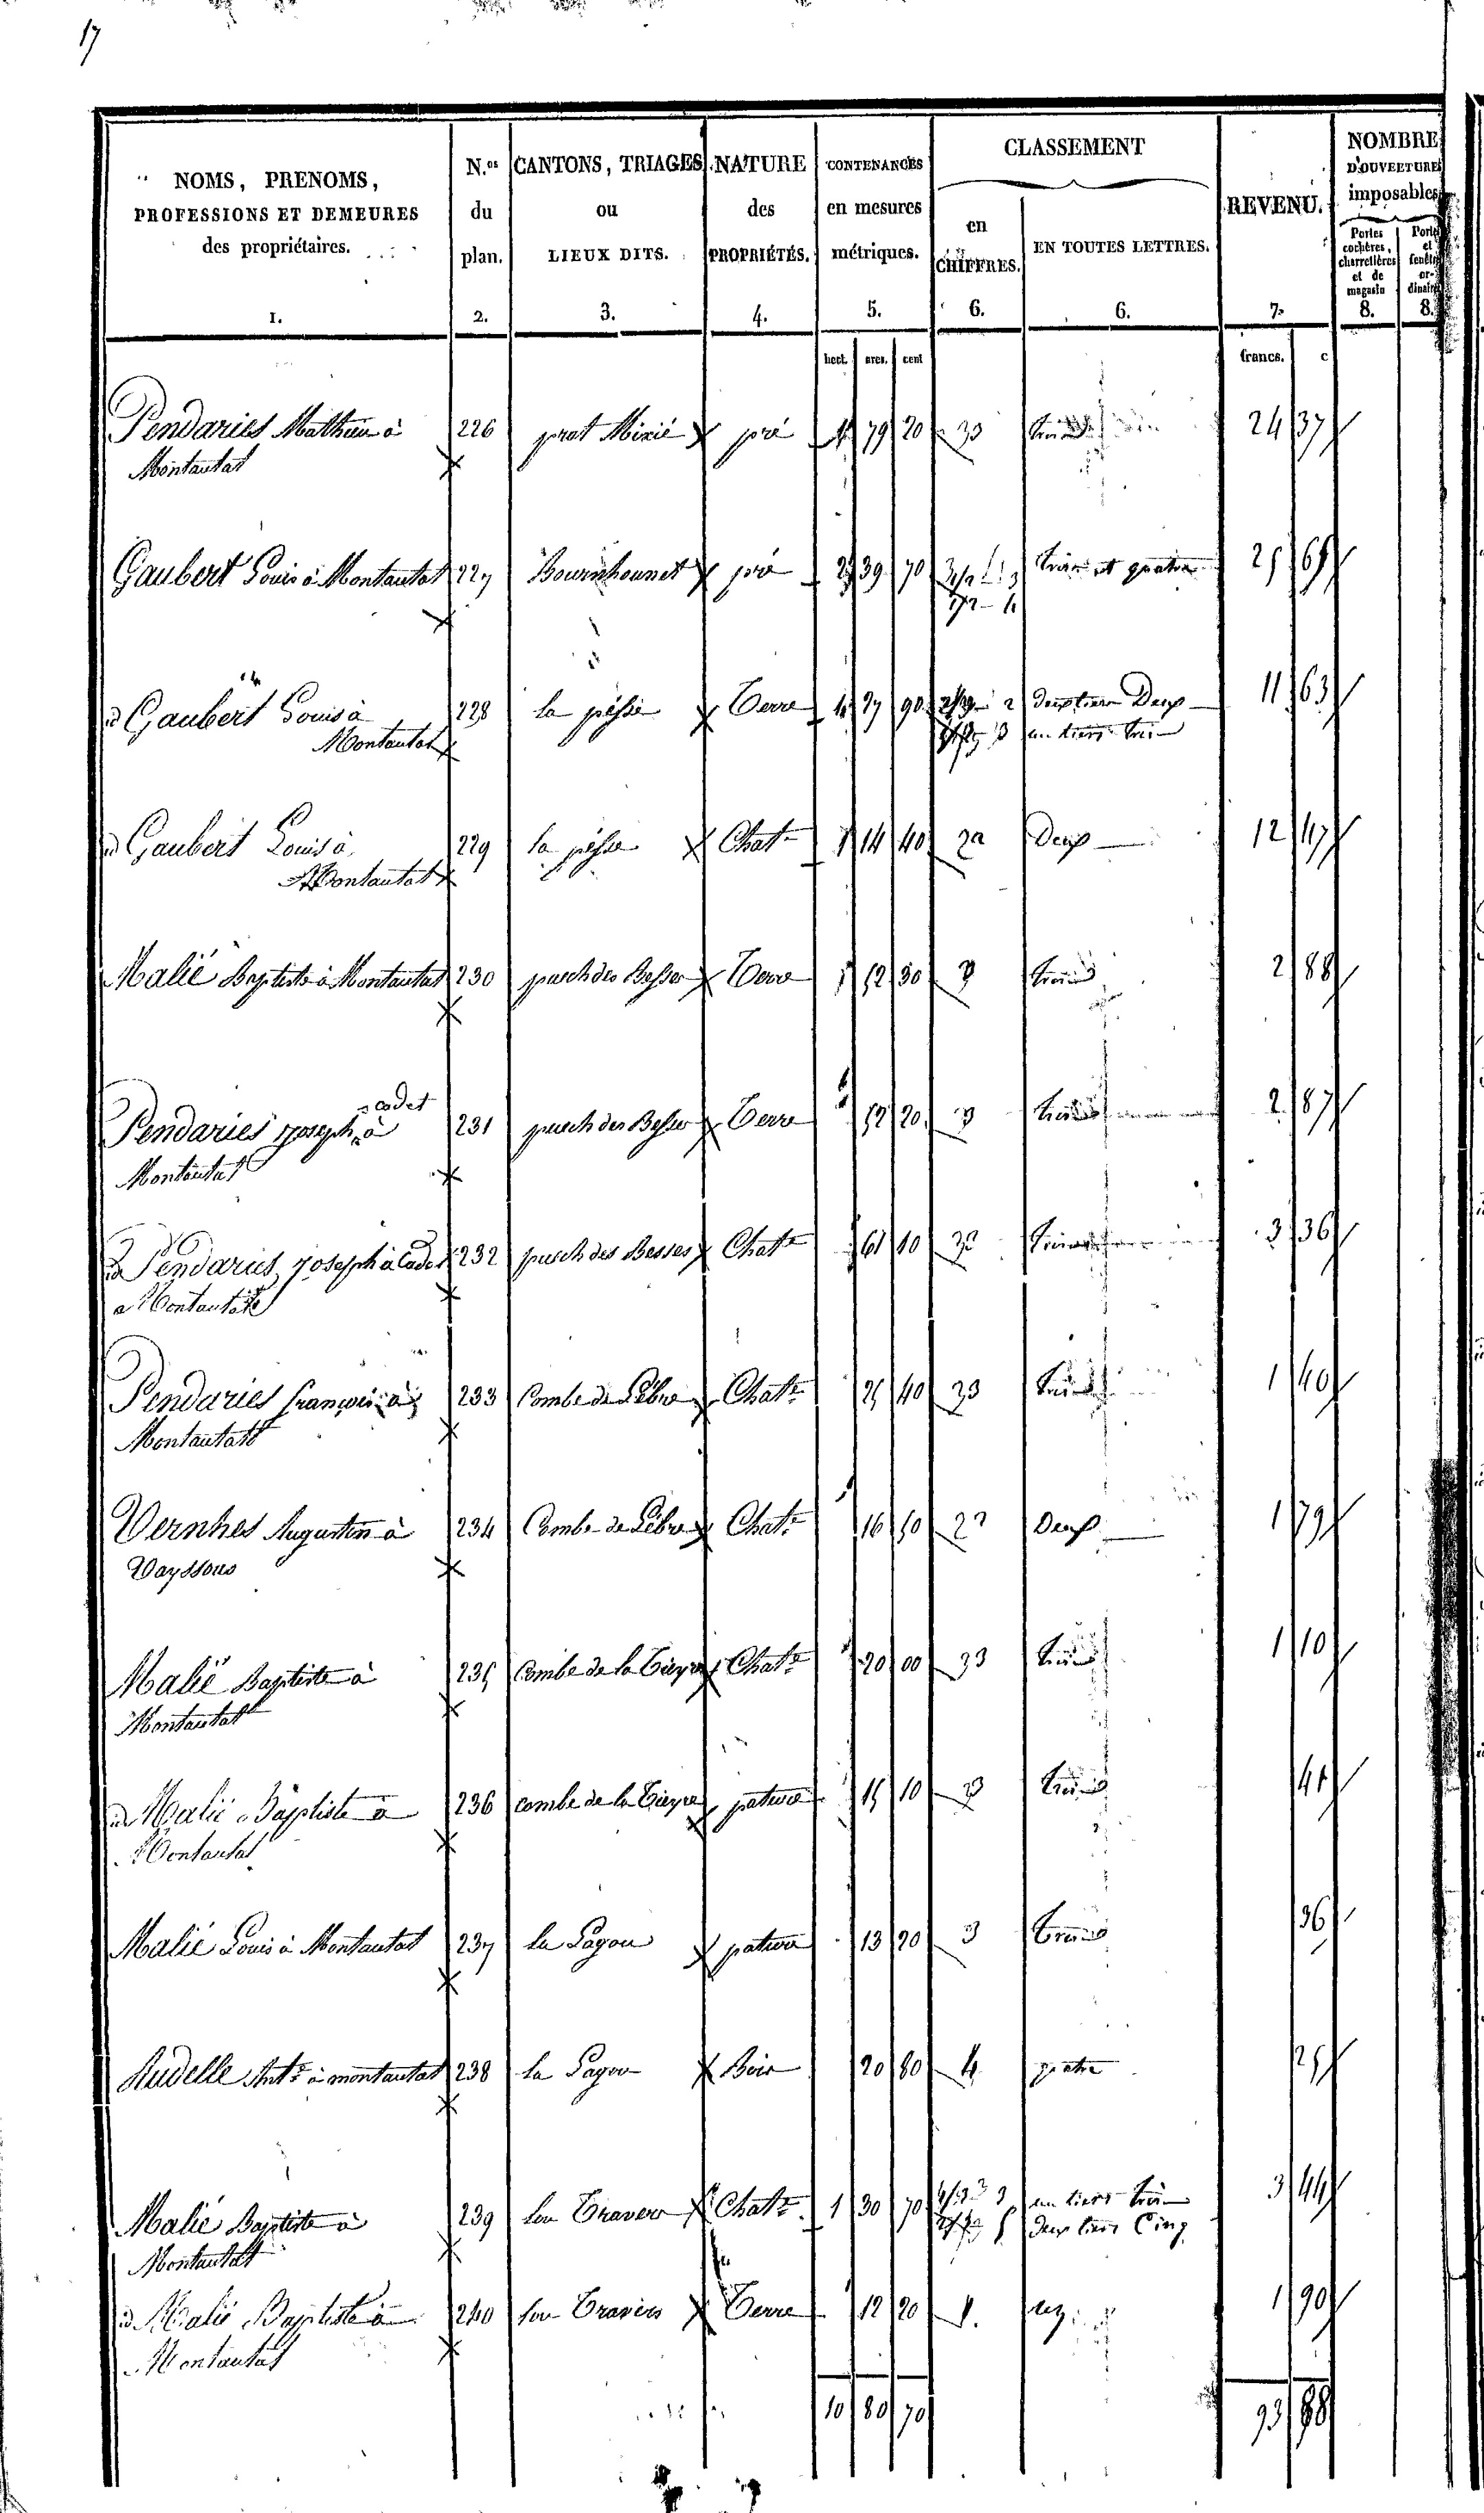 17
NOMS, PRENOMS, PROFESSIONS ET DEMEURES des propriétaires. N.os du plan. CANTONS, TRIAGES ou LIEUX DITS. NATURE des PROPRIÉTÉS. CONTENANCES en mesures métriques. CLASSEMENT en CHIFFRES. EN TOUTES LETTRES. REVENU. NOMBRE D'OUVERTURES imposables
Portes cochères, charretières et de magasin
1. 2. 3. 4. 5. 6. 6. 7. 8. 8.
hect. ares. cent francs. c
Pendaries Mathieu à 226 prat pré 79 20 3 trois 24 37
Montautat
Gaubert Louis à Montautat 227 Bournhounet pré 39 70 1/2 3 trois et quatre 25 69
1/2 4
id Gaubert Louis à 228 la Terre 90 2/3 2 deux tiers Deux 11 63
Montautat 1/3 3 un tiers trois
id Gaubert Louis à 229 la Chatre 14 40 2 Deux 12 47
Montautat
Malié Baptiste à Montautat 230 puech des Besses Terre 52 30 3 trois 2 88
Pendaries Joseph cadet à 231 puech des Besses Terre 52 20 3 trois 2 87
Montautat
id Pendaries Joseph à Cadet 232 puech des Besses Chatre 61 10 3 trois 3 36
a Montautat
Pendaries françois à 233 Combe de Lèbre Chatre 25 40 3 trois 1 40
Montautat
Vernhes Augustin à 234 Combe de Lèbre Chatre 16 50 2 Deux 1 79
Vayssous
Malié Baptiste à 235 Combe de la Chatre 20 00 3 trois 1 10
Montautat
id Malié Baptiste à 236 combe de la pature 15 10 3 trois 41
Montautat
Malié Louis à Montautat 237 la pature 13 20 3 trois 36
Audelle Ante à montautat 238 la Bois 20 80 4 quatre 25
Malié Baptiste à 239 lou Travers Chatre 1 30 70 1/3 3 un tiers trois 3 44
Montautat 2/3 5 deux tiers Cinq
id Malié Baptiste à 240 lou Travers Terre 12 20 1 90
Montautat
10 80 70 93 88